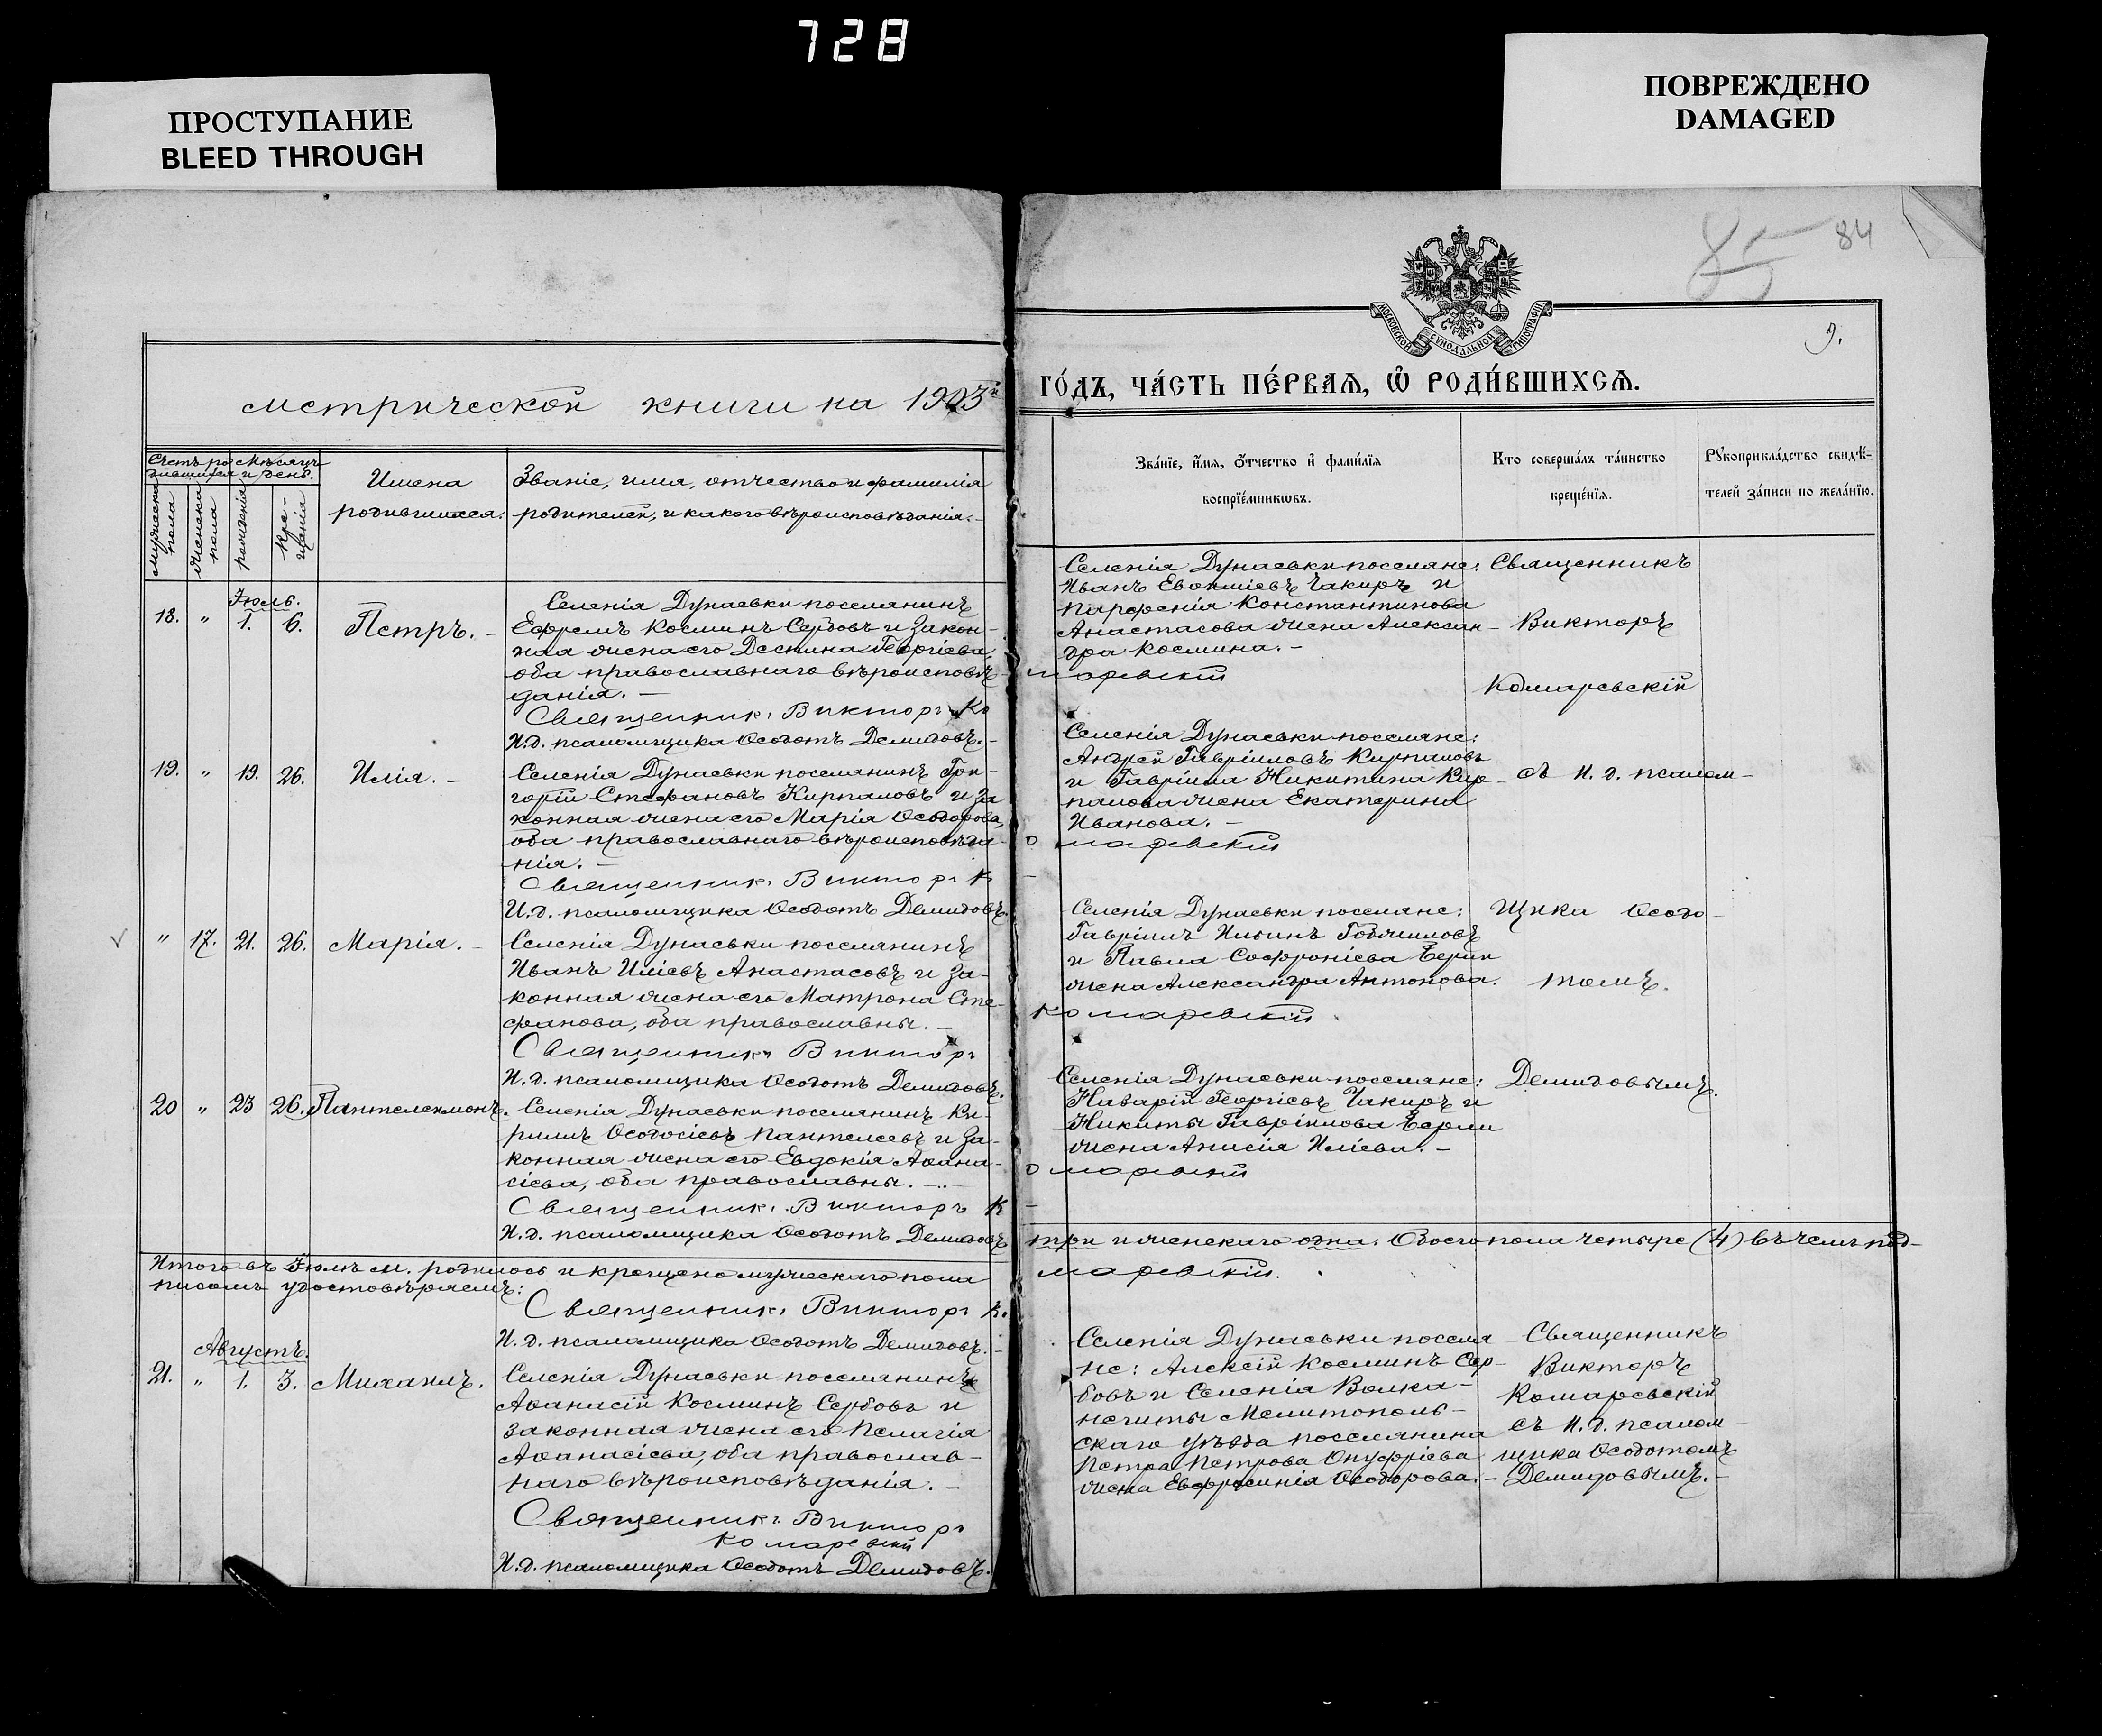 728
ПРОСТУПАНИЕ
BLEED THROUGH
ПОВРЕЖДЕНО
DAMAGED
85
84
9.
МОСКОВСКОЙ СѴНОДАЛЬНОЙ ТИПОГРАФІИ
метрической книги на 1903й
ГО́ДЪ, ЧА́СТЬ ПЕ́РВАѦ, Ѽ РОДИ́ВШИХСѦ.
Счетъ ро
дившихся
Мѣсяцъ
и день.
мужеска
пола
женска
пола
рожденія
кре-
щенія
Имена
родившихся.
Званіе, имя, отчество и фамилія
родителей, и какого вѣроисповѣданія.
Зва́нїе, и҆́мѧ, ѻ҆́тчество и҆ фами́лїѧ
воспрїе́мникѡвъ.
Кто соверша́лъ та́инство
креще́нїѧ.
Рꙋкоприкла́дство свидѣ́-
телей за́писи по жела́нїю.
Іюль.
18. " 1. 6. Петръ. -
Селенія Дунаевки поселянинъ
Ефремъ Косминъ Сербовъ и закон-
ная жена его Деспина Георгіева,
оба православнаго вѣроисповѣ-
данія. -
Священникъ Викторъ Ко
марвскій
И.д. псаломщика Ѳеодотъ Демидовъ. -
Селенія Дунаевки поселяне:
Иванъ Евѳиміевъ Чакиръ и
Парфенія Константинова
Анастасова жена Алексан-
дра Космина. -
Священникъ
Викторъ
Комаревскій
19. " 19. 26. Илія. -
Селенія Дунаевки поселянинъ Гри-
горій Стефановъ Кирпаловъ и за
конная жена его Марія Ѳеодорова,
оба православнаго вѣроисповѣда-
нія. -
Священникъ Викторъ К
омаревскій
И.д. псаломщика Ѳеодотъ Демидовъ.
Селенія Дунаевки поселяне:
Андрей Гавріиловъ Кирпаловъ
и Гавріила Никитина Кир-
палова жена Екатерина
Иванова. -
съ и. д. псалом-
" 17. 21. 26. Марія. -
Селенія Дунаевки поселянинъ
Иванъ Иліевъ Анастасовъ и за-
конная жена его Матрона Сте-
фанова, оба православны. -
Священникъ Викторъ
Комаревскій.
И.д. псаломщика Ѳеодотъ Демидовъ.
Селенія Дунаевки поселяне:
и Павла Софроніева
жена Александра Антонова.
щика Ѳеодо-
томъ.
20 " 23 26. Пантелеимонъ.
Селенія Дунаевки поселянинъ Ки-
риллъ Ѳеодосіевъ Пантелеевъ и за-
конная жена его Евдокія Аѳана-
сіева, оба православны. -
Священникъ Викторъ К
омаревскій
И.д. псаломщика Ѳеодотъ Демидовъ
Селенія Дунаевки поселяне:
Георгіевъ Чакиръ и
Никиты Гавріилова
жена Анисія Иліева. -
Демидовымъ.
Итого въ Іюлѣ м. родилось и крещено мужескаго пола
три и женскаго одна. Обоего пола четыре (4) въ чемъ под-
писомъ удостовѣряемъ:
Священникъ Викторъ Ко
маревскій.
И.д. псаломщика Ѳеодотъ Демидовъ. -
Августъ.
21. " 1. 3. Михаилъ.
Селенія Дунаевки поселянинъ
Аѳанасій Косминъ Сербовъ и
законная жена его Пелагія
Аѳанасіева, оба православ-
наго вѣроисповѣданія. -
Священникъ Викторъ
Комаревскій
И.д. псаломщика Ѳеодотъ Демидовъ.
Селенія Дунаевки поселя-
не: Алексій Косминъ Сер-
бовъ и Селенія Волка-
нешты Мелитополь-
скаго уѣзда поселянина
Петра Петрова Онуфріева
жена Евфросинія Ѳеодорова. -
Священникъ
Викторъ
Комаревскій
съ и. д. псалом-
щика Ѳеодотомъ
Демидовымъ. -